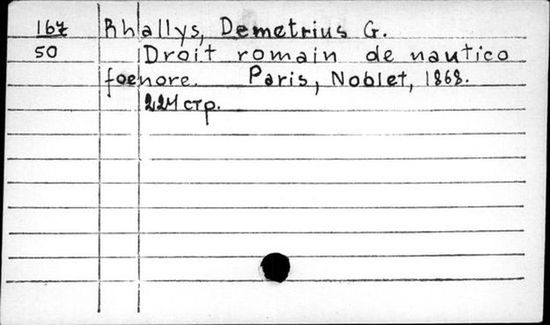 167 Rhallys, Demetrius G.
50 Droit romain de nautico
foenore. Paris, Noblet, 1868.
224 стр.